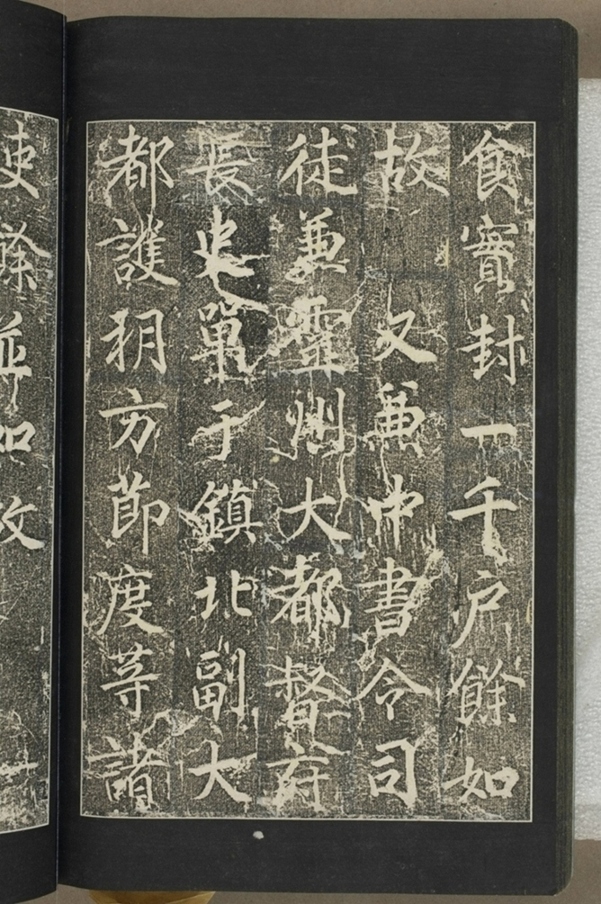 食實封一千戶餘如
故　又兼中書令司
徒兼靈州大都督府
長史單于鎮北副大
都護朔方節度等諸
使餘並如故